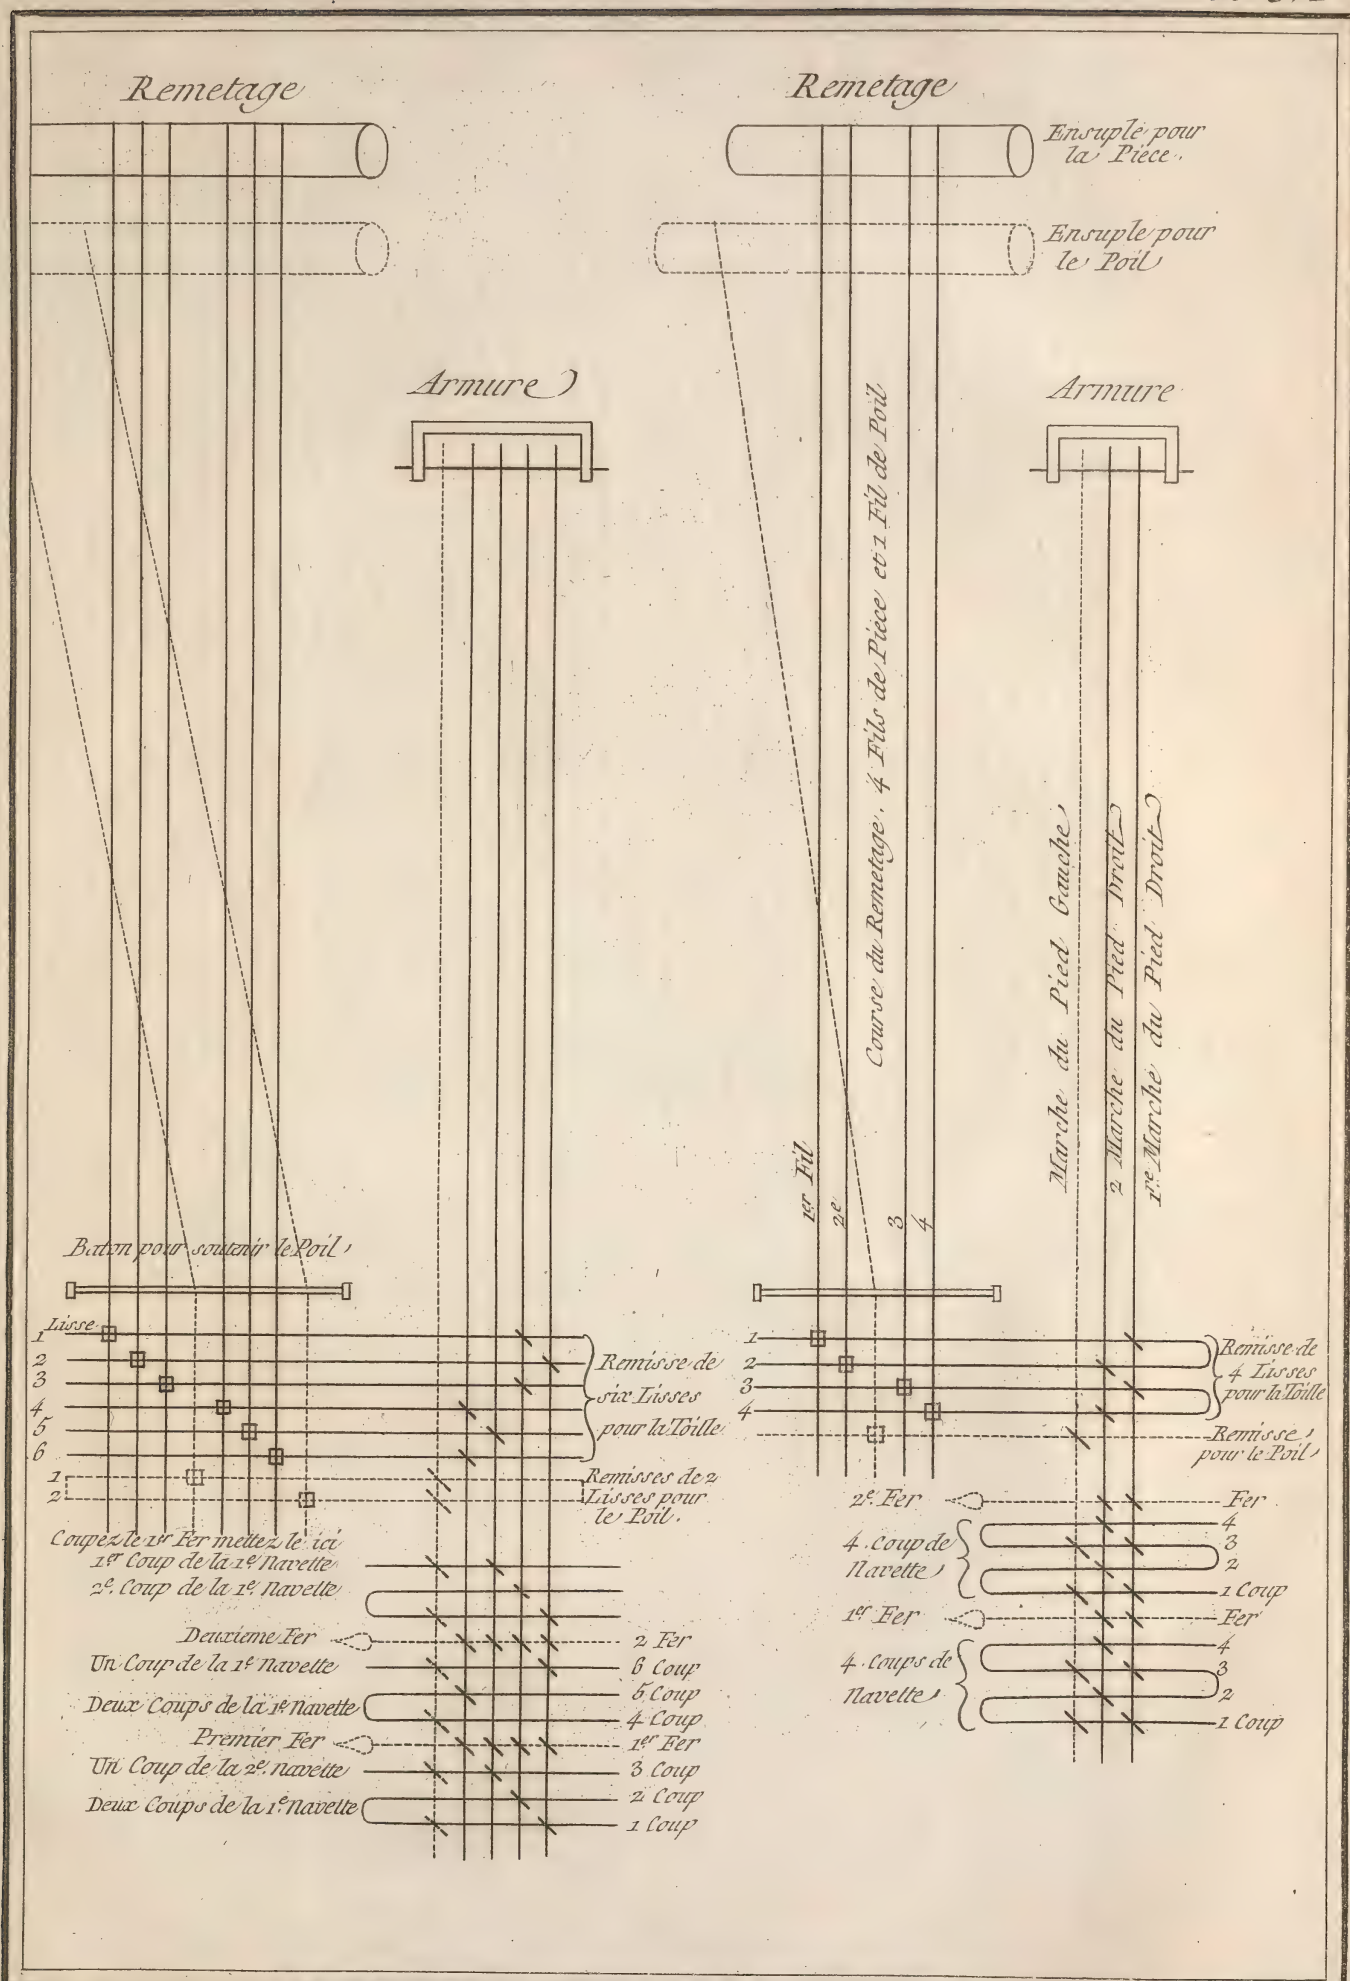 Remetage
Armure
Baton pour soutenir le Poil
Lisse
1
2
3
4
5
6
1
2
Remisse de
six Lisses
pour la Toille
Remisses de 2
Lisses pour
le Poil.
Coupez le 1er Fer mettez le ici
1er Coup de la 1e Navette
2e. Coup de la 1e Navette
Deuxieme Fer
2 Fer
Un Coup de la 1e Navette
6 Coup
5 Coup
Deux Coups de la 1e Navette
4 Coup
Premier Fer
1er Fer
Un Coup de la 2e. navette
3 Coup
2 Coup
Deux Coups de la 1e. Navette
1 Coup
Remetage
Ensuple pour
la Piece.
Ensuple pour
le Poil
Armure
Course du Remetage. 4 Fils de Piece et 1 Fil de Poil
1er Fil
2e
3
4
Marche du Pied Gauche
2 Marche du Pied Droit
1re Marche du Pied Droit
1
2
3
4
Remisse de
4 Lisses
pour la Toille
Remisse
pour le Poil
2e. Fer
Fer
4. Coup de
Navette
4
3
2
1 Coup
1er Fer
Fer
4. Coups de
Navette
4
3
2
1 Coup